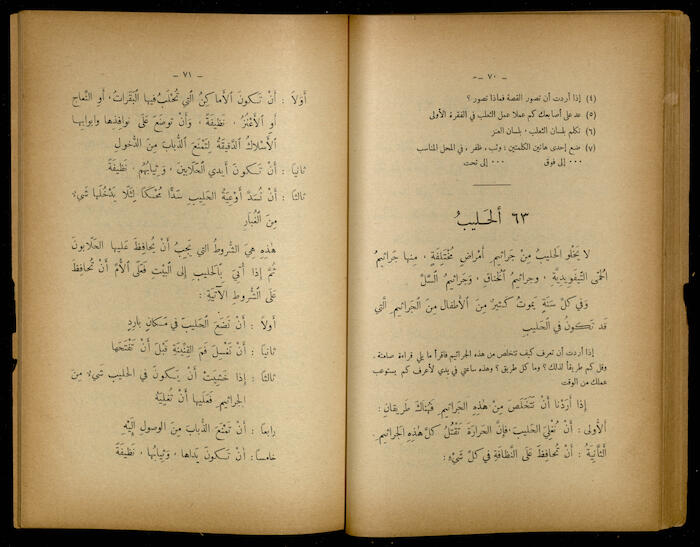 – ٧٠ –
(٤) إذا أردت أن تصور القصة فماذا تصور ؟
(٥) عد على أصابعك كم عملا عمل الثعلب في الفقرة الأولى
(٦) تكلم بلسان الثعلب ، بلسان العنز
(٧) ضع إحدى هاتين الكلمتين : وثب ، ظفر ، في المحل المناسب
٠٠٠ إلى فوق ٠٠٠ إلى تحت
٦٣ أَلحَليبُ
لا يَخْلُو الحَليبُ مِنْ جَراثيمِ أَمْراضٍ مُخْتَلِفَةٍ ، مِنْها جَراثيمُ
الحُمّى التِّيفوئِيدِيَّةِ ، وجَراثيمُ الخُناقِ ، وَجَراثيمُ السُّلِّ
وَفي كلِّ سَنَةٍ يَموتُ كَثيرٌ مِنَ الأَطْفالِ مِنَ الجَراثيمِ الَّتي
قَد تَكونُ في الحَليبِ
إذا أردت أن تعرف كيف تتخلص من هذه الجراثيم فاقرأ ما يلي قراءة صامتة ،
وقل كم طريقاً لذلك ؟ وما كل طريق ؟ وهذه ساعتي في يدي لأعرف كم يستوعب
عملك من الوقت
إذا أَرَدْنا أَنْ نَتَخَلَّصَ مِنْ هٰذِهِ الجَراثيمِ فَهُناكَ طَريقانِ :
أَلأُولى : أَنْ نُغْلِيَ الحَليبَ ، فَإِنَّ الحَرارَةَ تَقْتُلُ كلَّ هٰذِهِ الجَراثيمِ
أَلثّانِيَةُ : أَنْ نُحافِظَ عَلى النَّظافَةِ في كلِّ شَيْءٍ :
– ٧١ –
أَوَّلاً : أَنْ تَكونَ الأَماكِنُ الَّتي تُحْلَبُ فيها البَقَراتُ ، أَو النِّعاجُ
أَو الأَعْنُزُ ، نَظيفَةً ، وَأَنْ تُوضَعَ عَلَى نَوافِذِها وَابوابِها
الأَسْلاكُ الدَّقيقَةُ لِتَمْنَعَ الذُّبابَ مِنَ الدُّخولِ
ثانيًا : أَنْ تَكونَ أَيدي الحَلّابينَ ، وَثِيابُهُم ، نَظيفَةً
ثالثًا : أَنْ تُسَدَّ أَوْعِيَةُ الحَليبِ سَدًّا مُحْكَمًا لِئَلّا يَدْخُلَها شَيْءٌ
مِنَ الغُبارِ
هٰذِهِ هِيَ الشُّروطُ الَّتي يَجِبُ أَنْ يُحافِظَ عَلَيها الحَلّابونَ
ثُمَّ إِذا أُتِيَ بِالحَليبِ إِلى البَيْتِ فَعَلى الأُمِّ أَنْ تُحافِظَ
عَلَى الشُّروطِ الآتِيَةِ :
أَولاً : أَنْ تَضَعَ الحَليبَ في مَكانٍ بارِدٍ
ثانيًا : أَنْ تَغْسِلَ فَمَ القِنِّينَةِ قَبْلَ أَنْ تَفْتَحَها
ثالثًا : إِذا خَشِيَتْ أَنْ يَكونَ في الحَليبِ شَيْءٌ مِنَ
الجَراثيمِ فَعَلَيها أَنْ تُغْلِيَهُ
رابعًا : أَنْ تَمْنَعَ الذُّبابَ مِنَ الوصولِ إِلَيْهِ
خامسًا : أَنْ تَكونَ يَداها ، وَثِيابُها ، نَظيفَةً